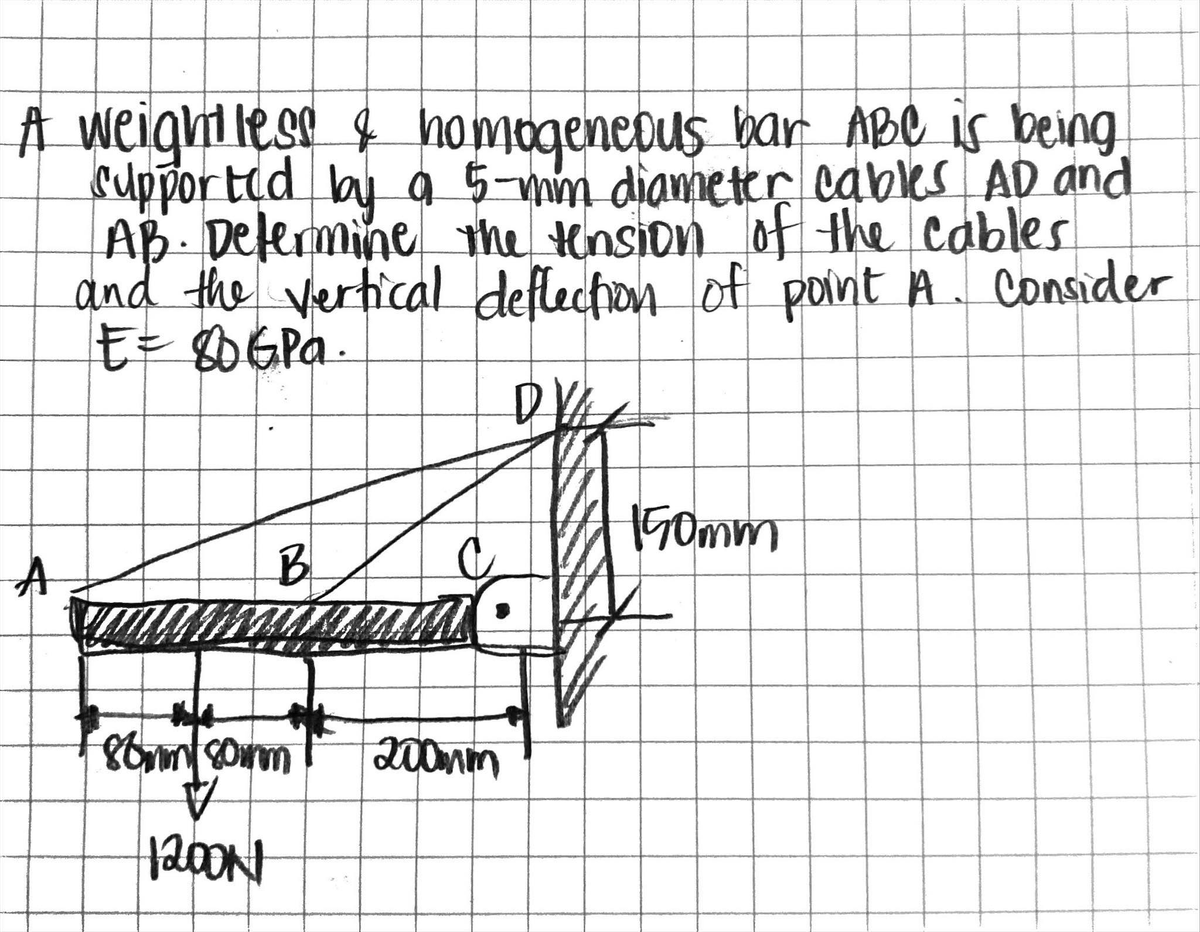 A weightless & homogeneous bar ABC is being
supported by a 5-mm diameter cables AD and
AB. Determine the tension of the cables
and the vertical deflection of point A. Consider
E= 80GPa.
D
150mm
A B C
80mm 80mm 200mm
1200N